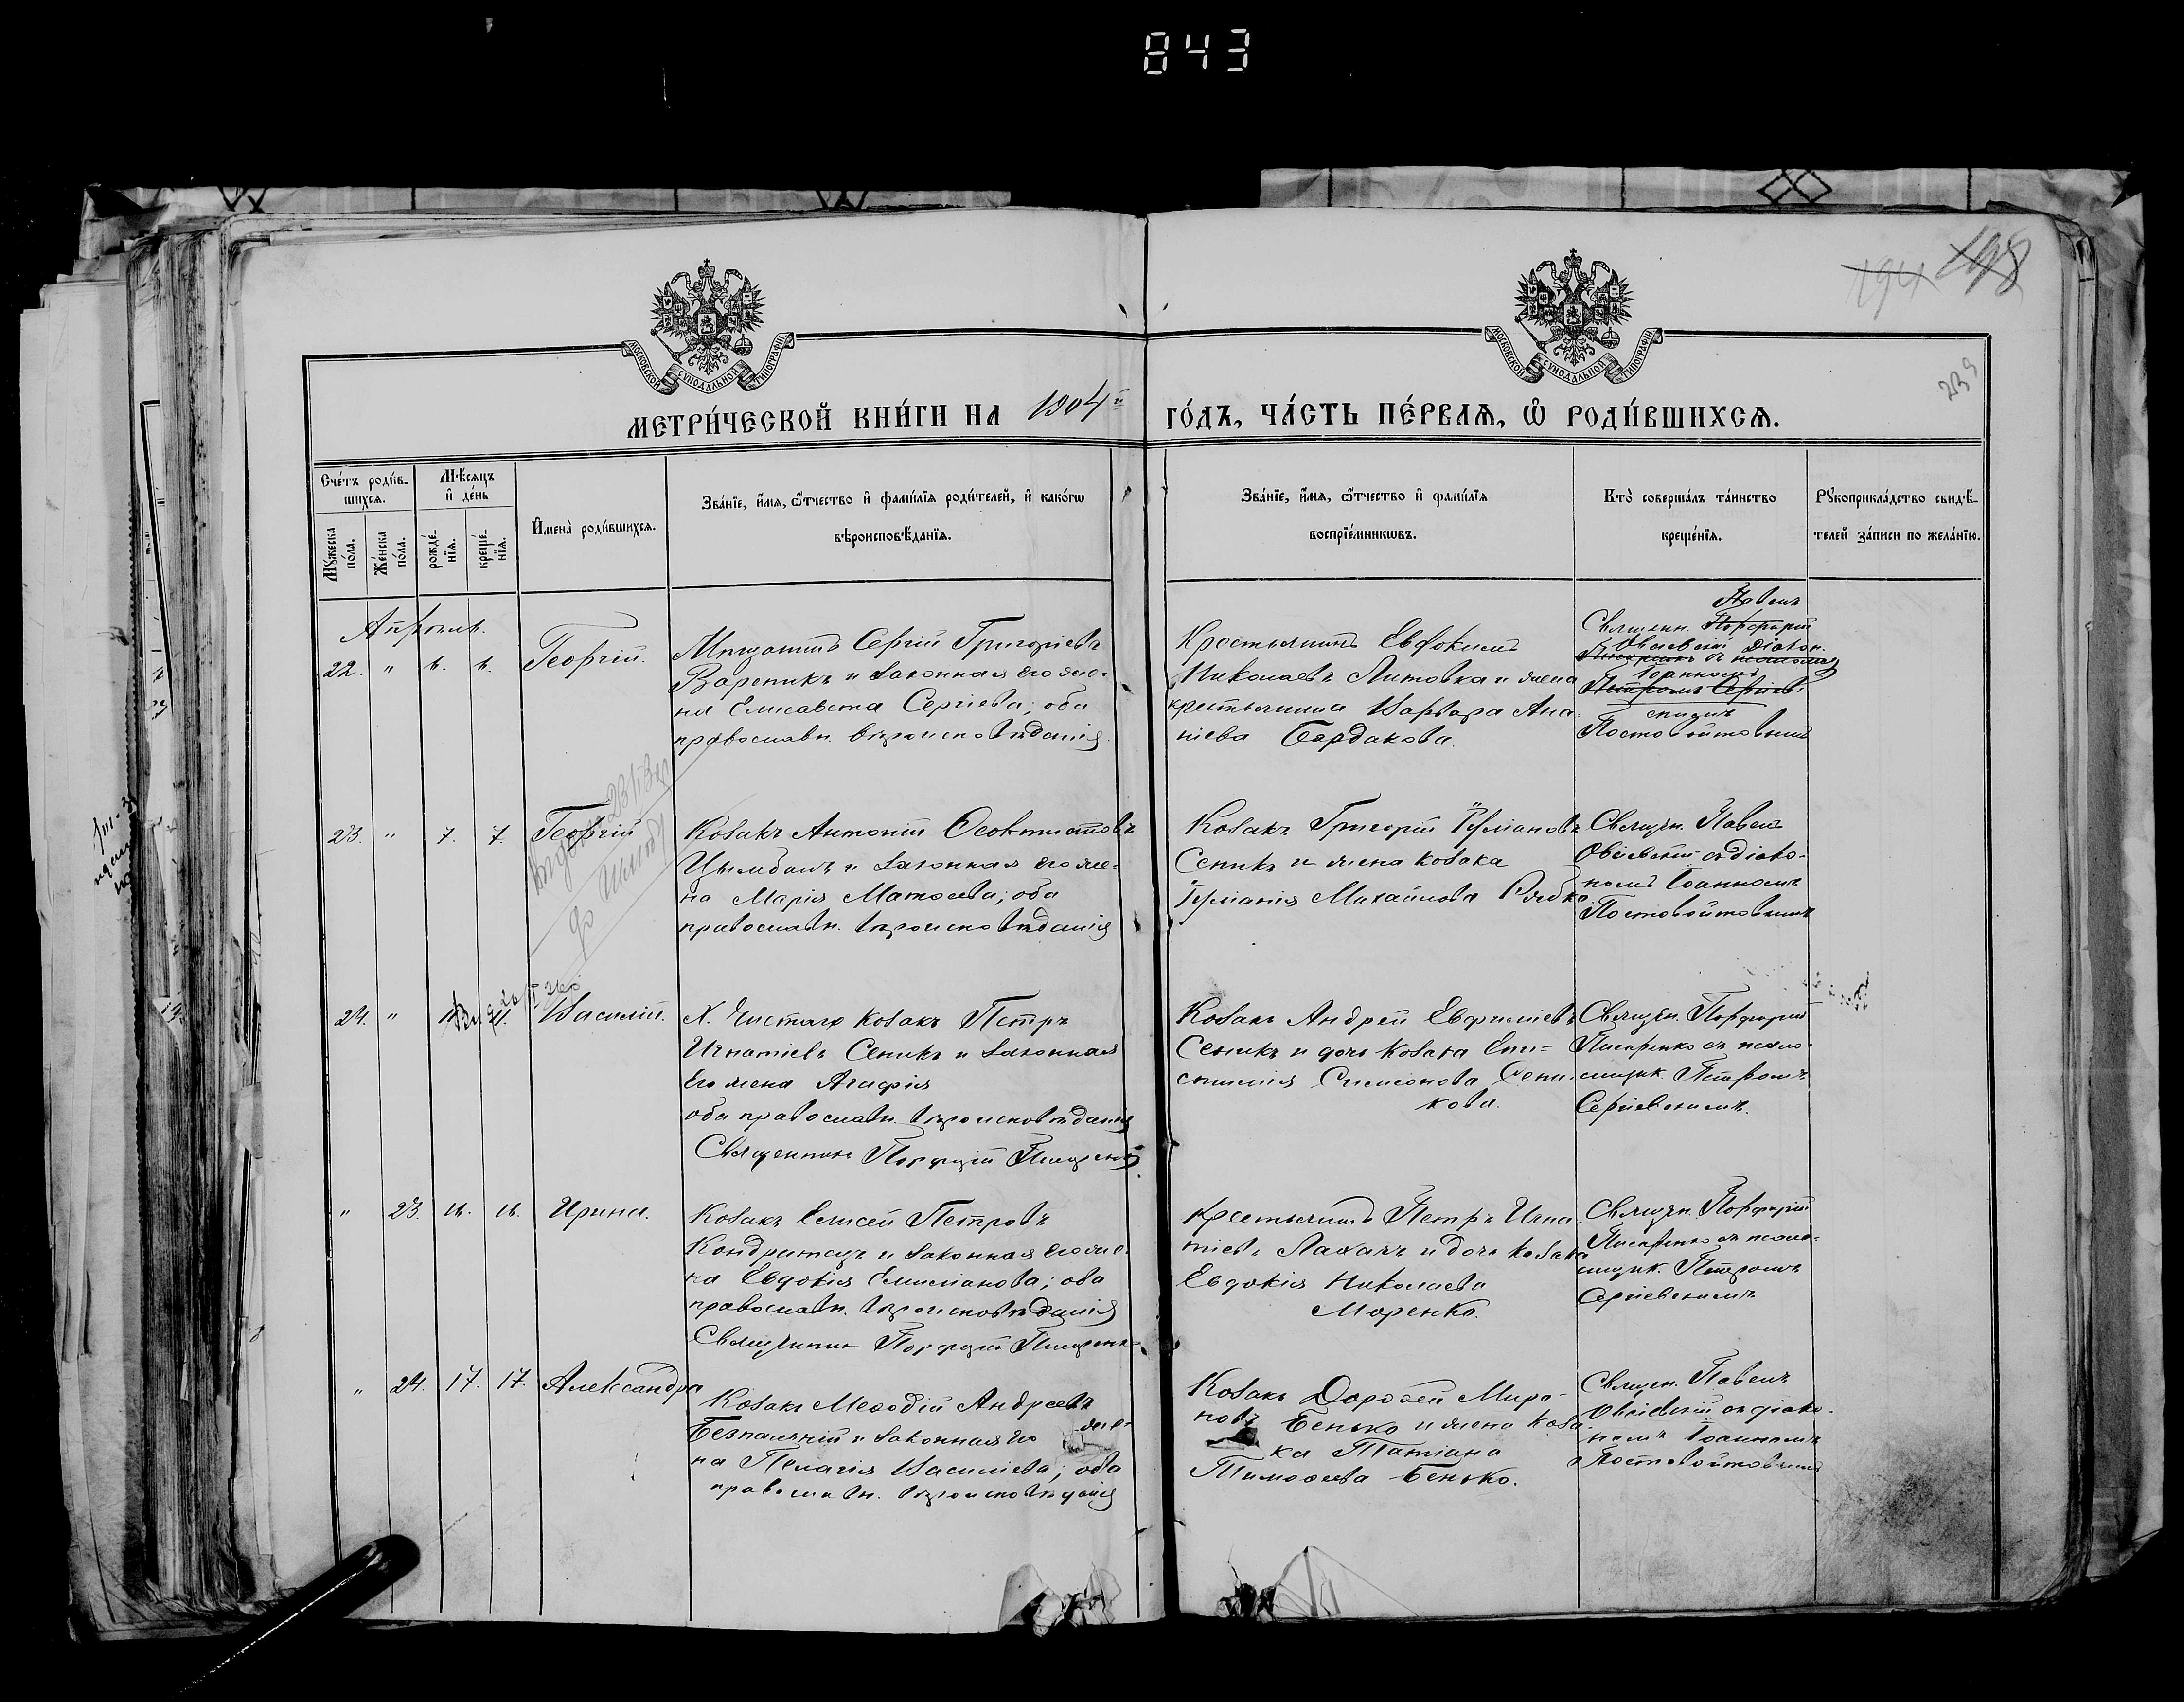 843
198
194
239
МОСКОВСКОЙ СѴНОДАЛЬНОЙ ТИПОГРАФІИ
МОСКОВСКОЙ СѴНОДАЛЬНОЙ ТИПОГРАФІИ
МЕТРИ́ЧЕСКОЙ КНИ́ГИ НА 1904й ГО́ДЪ, ЧА́СТЬ ПЕ́РВАѦ, Ѡ҆ РОДИ́ВШИХСѦ.
Сче́тъ роди́в-
шихсѧ.
Мѣ́сѧцъ
и҆ де́нь
Мꙋ́жеска по́ла.
Же́нска по́ла.
рожде́-
нїѧ.
креще́-
нїѧ.
И҆мена̀ роди́вшихсѧ.
Зва́нїе, и҆́мѧ, ѻ҆́тчество и҆ фами́лїѧ роди́телей, и҆ како́гѡ
вѣроисповѣ́данїѧ.
Зва́нїе, и҆́мѧ, ѻ҆́тчество и҆ фами́лїѧ
воспрїе́мникѡвъ.
Кто̀ соверша́лъ та́инство
креще́нїѧ.
Рꙋкоприкла́дство свидѣ́-
телей за́писи по жела́нїю.
Апрѣль.
22. " 6. 6. Георгій.
Мѣщанинъ Сергій Григоріевъ
Вареникъ и законная его же-
на Елисавета Сергіева; оба
православн. вѣроисповѣданія.
Крестьянинъ Евфокимъ
Николаевъ Литовка и жена
крестьянина Варвара Ана-
ніева Бардакова.
Павелъ
Священн. Порфирій
Овсіевскій діакон.
Іоанномъ
Петромъ Сергіев-
Постовойтовымъ
23. " 7. 7. Георгій
Козакъ Антоній Ѳеоктистовъ
Цымбалъ и законная его же-
на Марія Матѳеева; оба
православн. вѣроисповѣданія
Козакъ Григорій Іуліановъ
Сеникъ и жена козака
Іуліанія Михайлова Рябко
Священ. Павелъ
Овсіевскій съ діако-
номъ Іоанномъ
Постовойтовымъ
24. " 11. 11. Василій.
Х. Чистаго козакъ Петръ
Игнатіевъ Сеникъ и законная
его жена Агафія
оба православн. вѣроисповѣданія
Священникъ Порфирій Писаренко
Козакъ Андрей Евфиміевъ
Сеникъ и дочь козака Епи-
Симеонова Сени-
кова.
Священ. Порфирій
Писаренко съ псало-
мщик. Петромъ
Сергіевскимъ.
" 23. 16. 16. Ирина.
Козакъ Елисей Петровъ
Кондратецъ и законная его же-
на Евдокія Емиліанова; оба
православн. вѣроисповѣданія
Священникъ Порфирій Писаренко
Крестьянинъ Петръ Игна-
тіевъ и дочь козака
Евдокія Николаева
Моренко.
Священ. Порфирій
Писаренко съ псало-
мщик. Петромъ
Сергіевскимъ
" 24. 17. 17. Александра
Козакъ Меѳодій Андреевъ
Безпалчій и законная его же-
на Пелагія Василіева; оба
православн. вѣроисповѣданія
Козакъ Дороѳей Миро-
новъ Бенько и жена коза-
ка Татіана
Тимоѳеева Бенько.
Священ. Павелъ
Овсіевскій съ діако-
номъ Іоанномъ
Постовойтовымъ